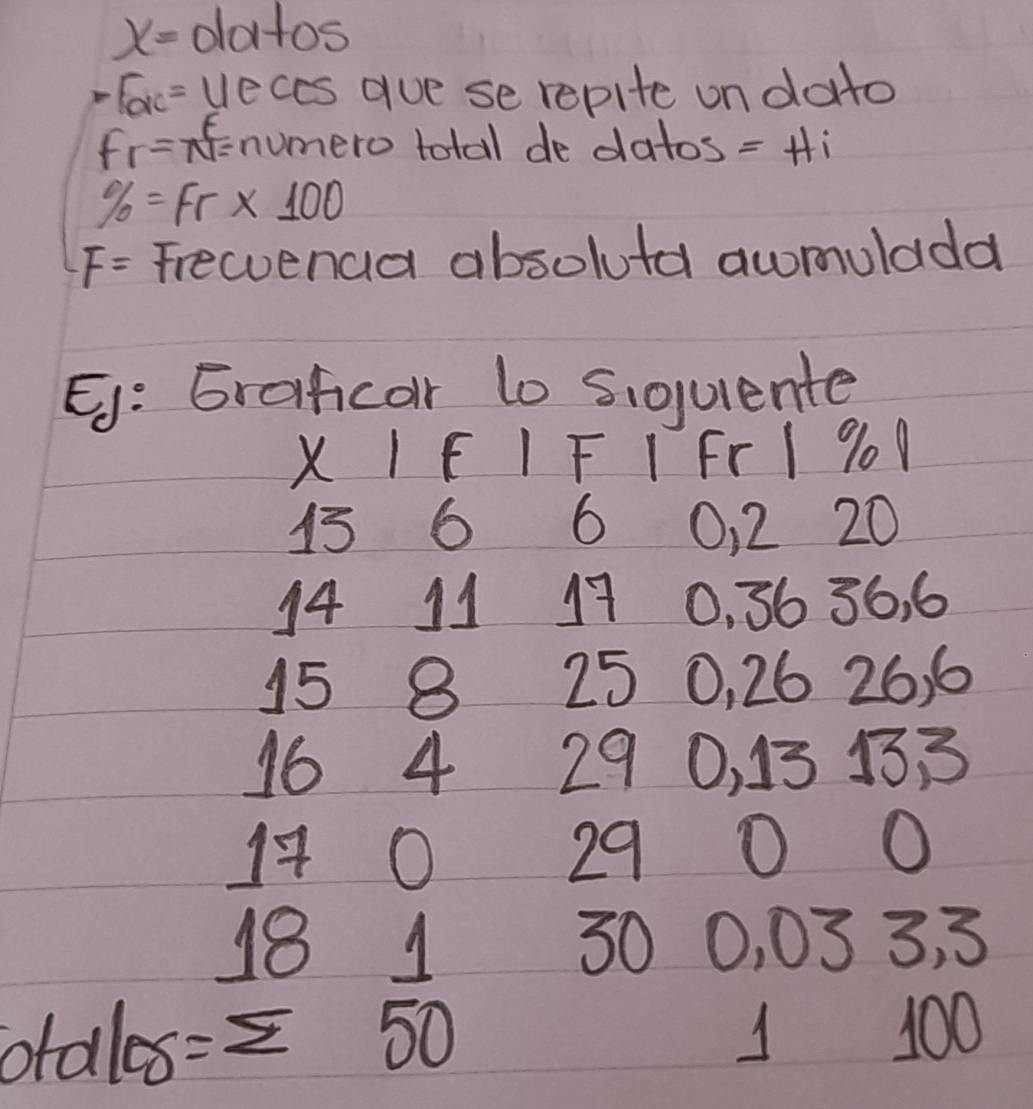 X=datos
-Fac= veces que se repite un dato
fr=nf=numero total de datos = Hi
%=Fr x 100
F= Frecuencia absoluta acumulada
Ej: Graficar lo siguiente
X | F | F | Fr | % |
13 6 6 0,2 20
14 11 17 0.36 36,6
15 8 25 0,26 26,6
16 4 29 0,13 13,3
17 0 29 0 0
18 1 30 0,03 3,3
otales=Σ 50 1 100